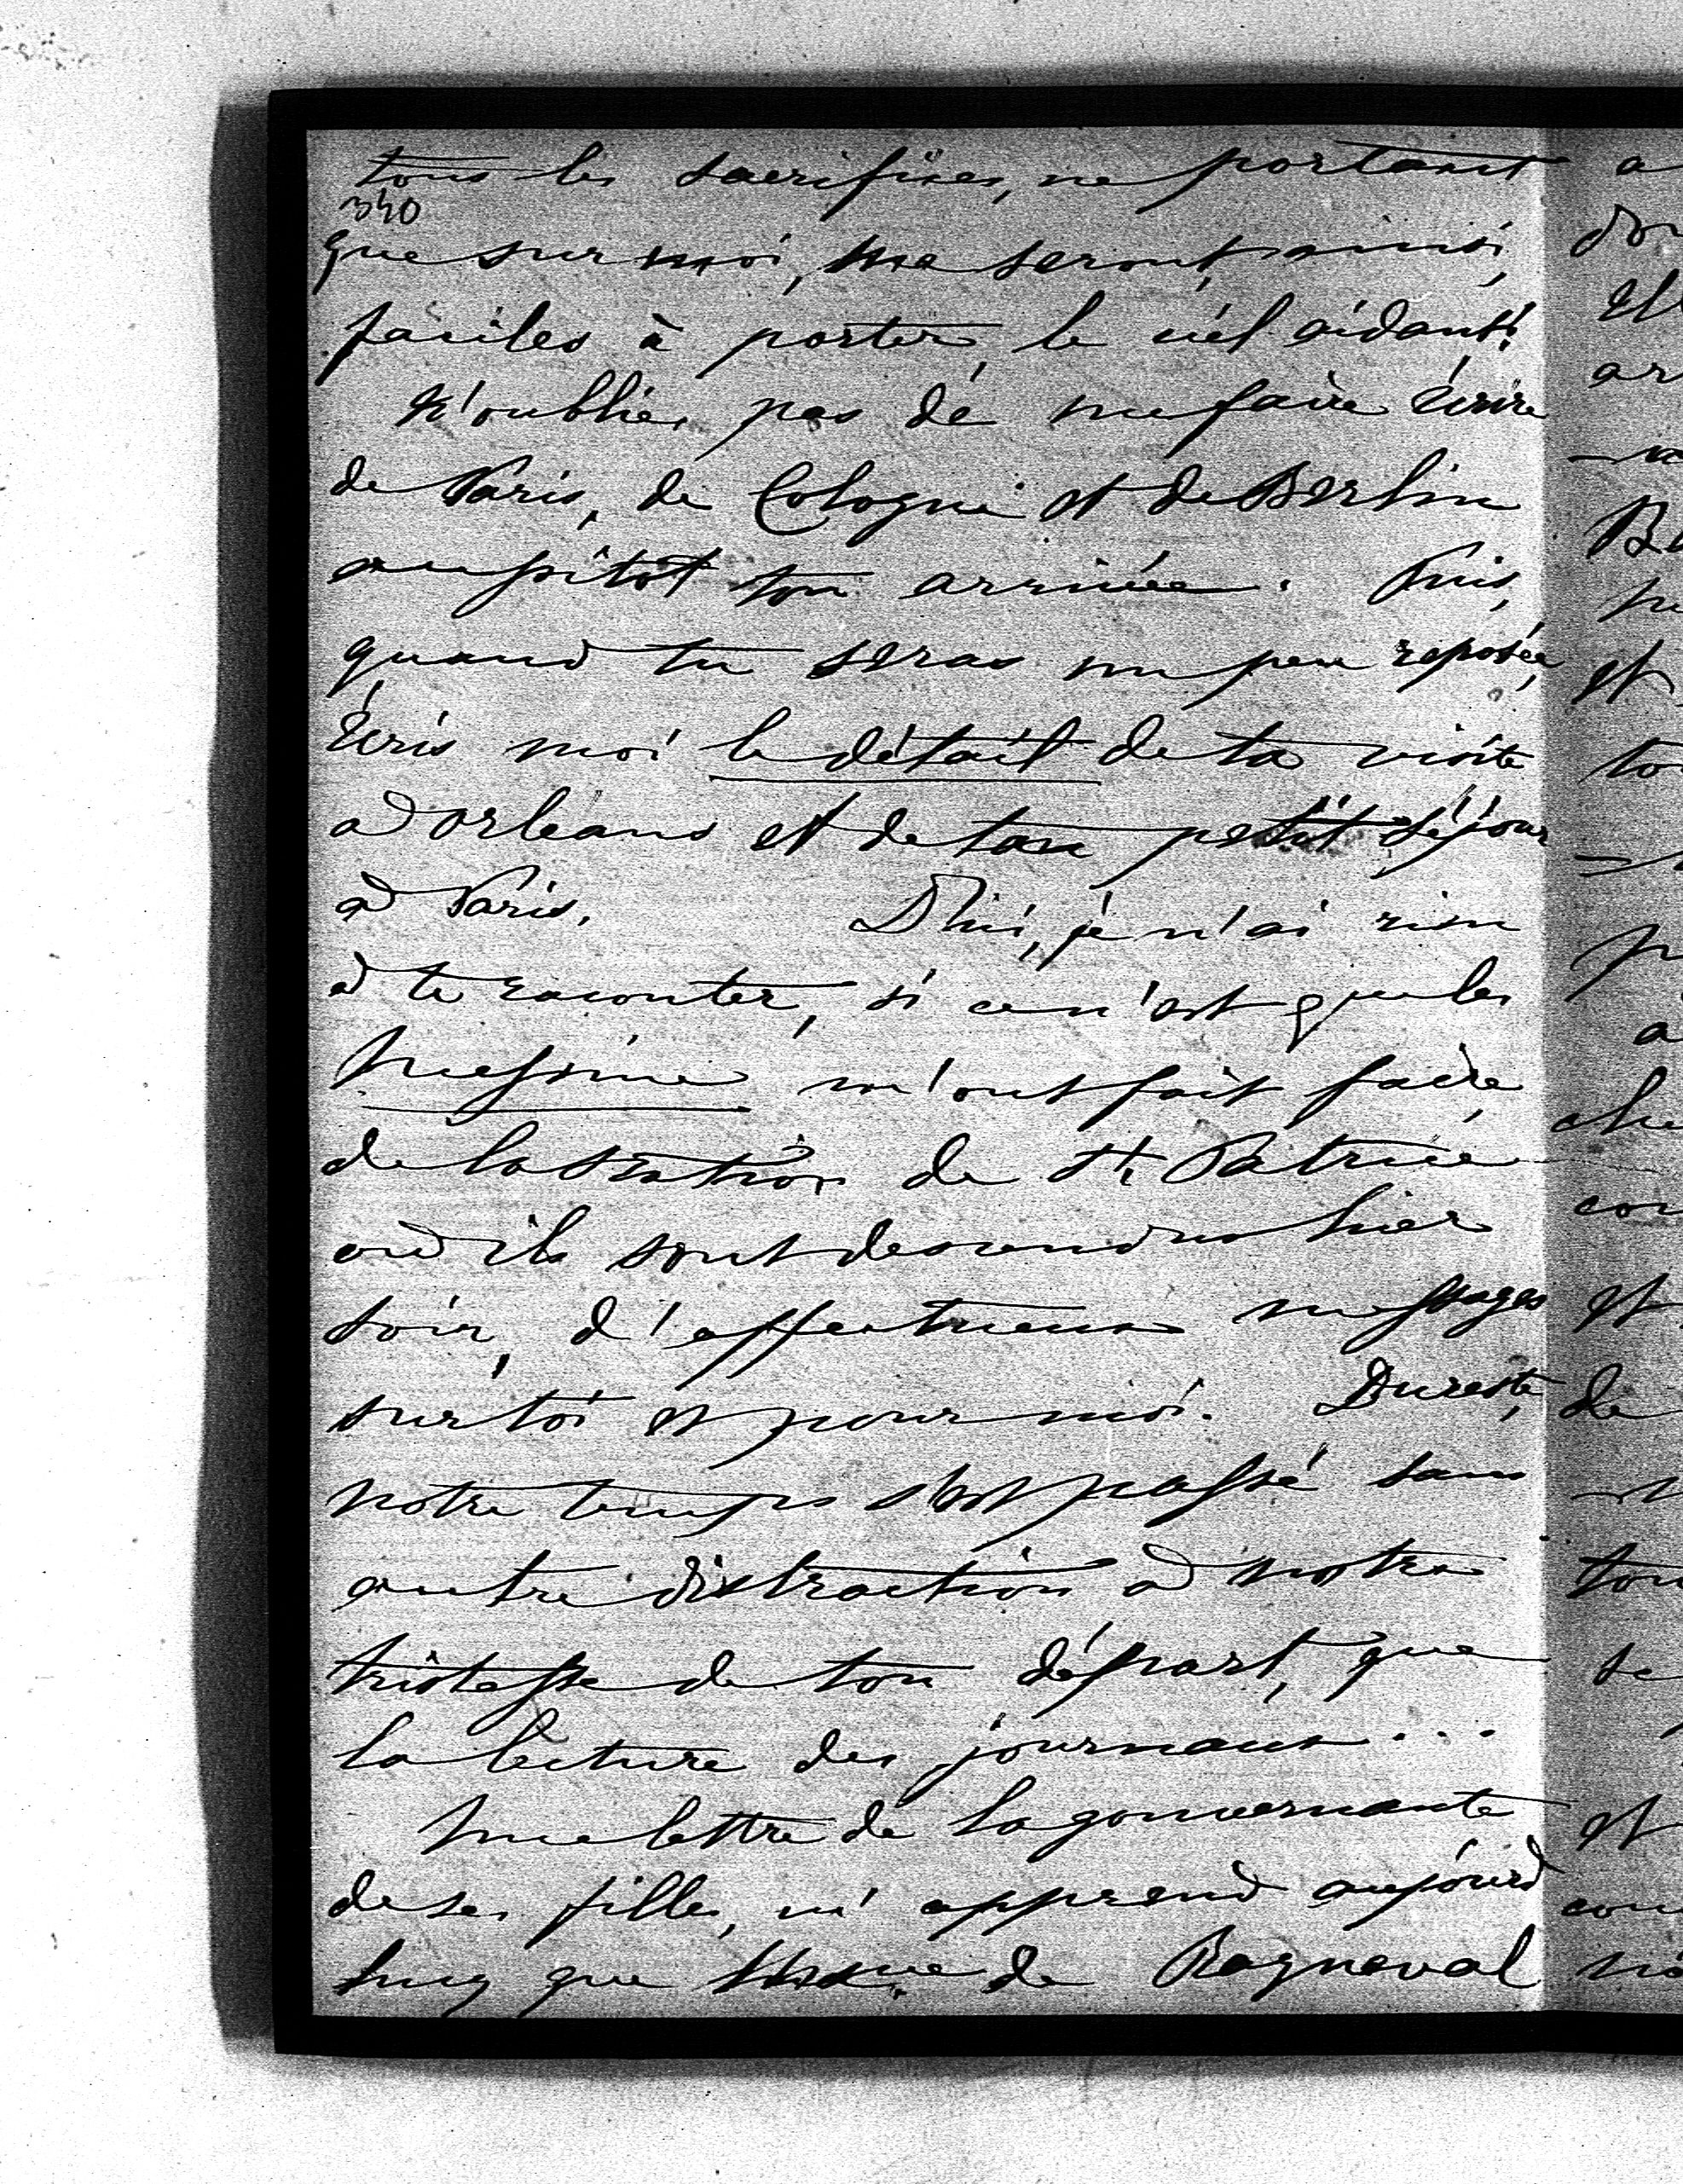 tous les sacrifices, ne portant
340
que sur moi, me seront, ainsi,
faciles à porter, le ciel aidant!
N'oublies pas de me faire écrire
de Paris, de Cologne et de Berlin
aussitôt ton arrivée. Puis,
quand tu seras un peu reposée,
écris moi le détail de ta visite
à Orléans et de ton petit séjour
à Paris. D'ici, je n'ai rien
à te raconter, si ce n'est que les
m'ont fait faire,
de la station de St. Patrice
où ils sont descendus hier
soir, d'affectueux messages
sur toi et pour moi. Du reste,
notre temps s'est passé sans
autre distraction à notre
tristesse de ton départ, que
la lecture des journaux...
Une lettre de la gouvernante
de ses filles, m'apprend aujourd
huy que de Rayneval
a
et
to
a
che
et
de
tou
se
et